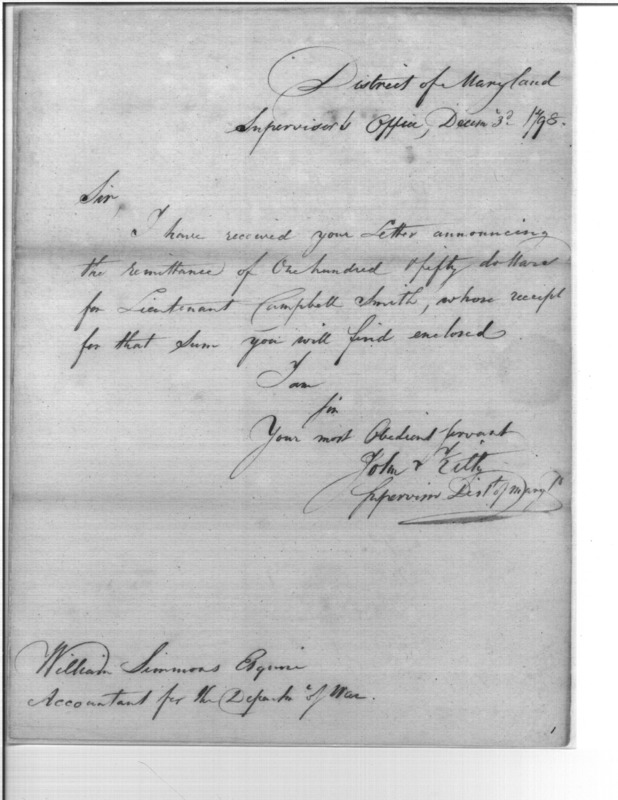 District of Maryland
Supervisor's Office, Decem 3d 1798.
Sir
I have received your Letter announcing
the remittance of One hundred & fifty dollars
for Lieutenant Campbell Smith, whose receipt
for that Sum you will find enclosed
I am
Sir
Your most Obedient Servant
John Kilty
Supervisor Distt of Maryld
William Simmons Esquire
Accountant for the Departmt of War.